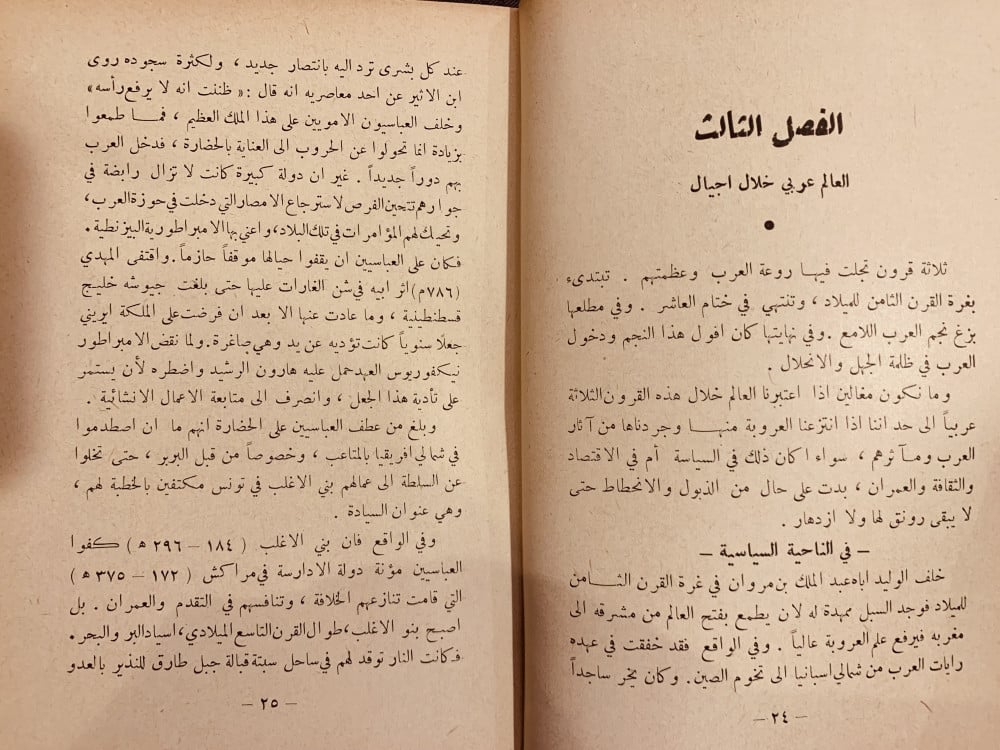 الفصل الثالث
العالم عربي خلال اجيال
ثلاثة قرون تجلت فيها روعة العرب وعظمتهم . تبتدىء
بغرة القرن الثامن للميلاد ، وتنتهي في ختام العاشر . وفي مطلعها
بزغ نجم العرب اللامع . وفي نهايتها كان افول هذا النجم ودخول
العرب في ظلمة الجهل والانحلال .
وما نكون مغالين اذا اعتبرنا العالم خلال هذه القرون الثلاثة
عربياً الى حد اننا اذا انتزعنا العروبة منها وجردناها من آثار
العرب ومآثرهم ، سواء اكان ذلك في السياسة أم في الاقتصاد
والثقافة والعمران ، بدت على حال من الذبول والانحطاط حتى
لا يبقى رونق لها ولا ازدهار .
– في الناحية السياسية –
خلف الوليد اباه عبد الملك بن مروان في غرة القرن الثامن
للميلاد فوجد السبل ممهدة له لان يطمع بفتح العالم من مشرقه الى
مغربه فيرفع علم العروبة عالياً . وفي الواقع فقد خفقت في عهده
رايات العرب من شمالي اسبانيا الى تخوم الصين . وكان يخر ساجداً
– ٢٤ –
عند كل بشرى ترد اليه بانتصار جديد ، ولكثرة سجوده روى
ابن الاثير عن احد معاصريه انه قال : « ظننت انه لا يرفع رأسه »
وخلف العباسيون الامويين على هذا الملك العظيم ، فما طمعوا
بزيادة انما تحولوا عن الحروب الى العناية بالحضارة ، فدخل العرب
بهم دوراً جديداً . غير ان دولة كبيرة كانت لا تزال رابضة في
جوارهم تتحين الفرص لاسترجاع الامصار التي دخلت في حوزة العرب ،
وتحيك لهم المؤامرات في تلك البلاد ، واعني بها الامبراطورية البيزنطية .
فكان على العباسيين ان يقفوا حيالها موقفاً حازماً . واقتفى المهدي
(٧٨٦م) اثر ابيه في شن الغارات عليها حتى بلغت جيوشه خليج
قسطنطينية ، وما عادت عنها الا بعد ان فرضت على الملكة ايريني
جعلا سنوياً كانت تؤديه عن يد وهي صاغرة . ولما نقض الامبراطور
نيكفوريوس العهد حمل عليه هارون الرشيد واضطره لأن يستمر
على تأدية هذا الجعل ، وانصرف الى متابعة الاعمال الانشائية .
وبلغ من عطف العباسيين على الحضارة انهم ما ان اصطدموا
في شمالي افريقيا بالمتاعب ، وخصوصاً من قبل البربر ، حتى تخلوا
عن السلطة الى عمالهم بني الاغلب في تونس مكتفين بالخطبة لهم ،
وهي عنوان السيادة .
وفي الواقع فان بني الاغلب ( ١٨٤ – ٢٩٦ ه ) كفوا
العباسيين مؤنة دولة الادارسة في مراكش ( ١٧٢ – ٣٧٥ ه )
التي قامت تنازعهم الخلافة ، وتنافسهم في التقدم والعمران . بل
اصبح بنو الاغلب ، طوال القرن التاسع الميلادي ، اسياد البر والبحر .
فكانت النار توقد لهم في ساحل سبتة قبالة جبل طارق للنذير بالعدو
– ٢٥ –